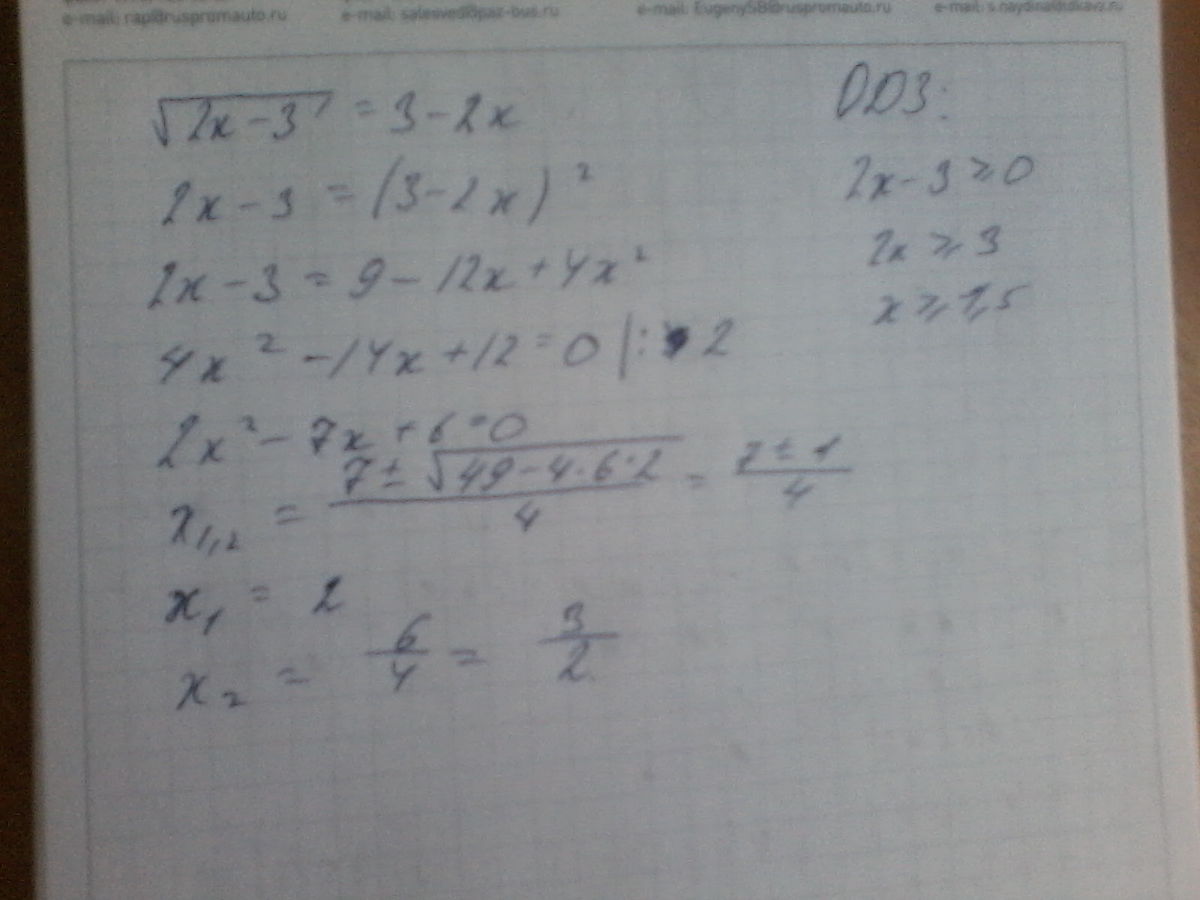 e-mail: rap@ruspromauto.ru e-mail: salesved@paz-bus.ru e-mail: EugenySB@ruspromauto.ru
√(2x-3) = 3-2x
2x-3 = (3-2x)²
2x-3 = 9-12x+4x²
4x²-14x+12=0 |: 2
2x²-7x+6=0
x₁,₂ = (7±√(49-4·6·2))/4 = (7±1)/4
x₁ = 2
x₂ = 6/4 = 3/2
ОДЗ:
2x-3≥0
2x≥3
x≥1,5